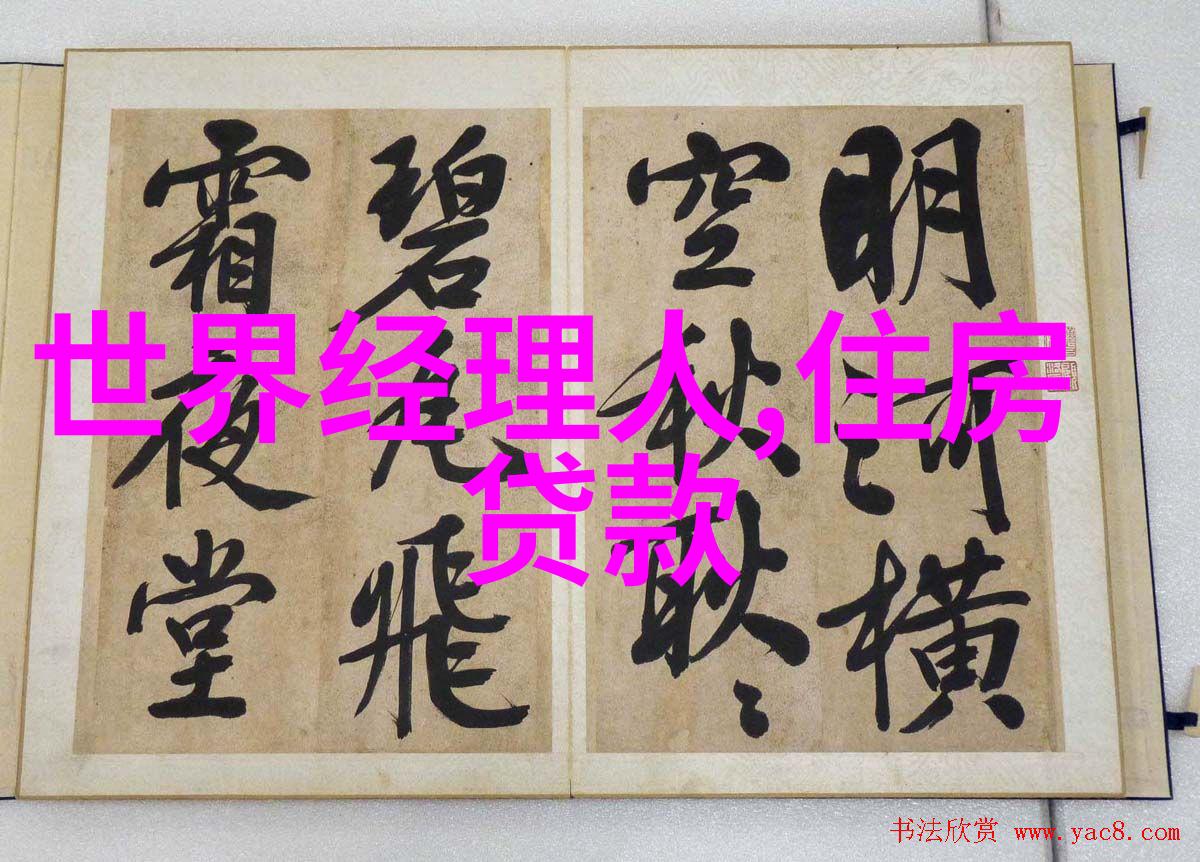 明河横
空秋耿〻
碧瓦飛
霜夜堂
世界经理人,住房
贷款
书法欣赏 www.yac8.com